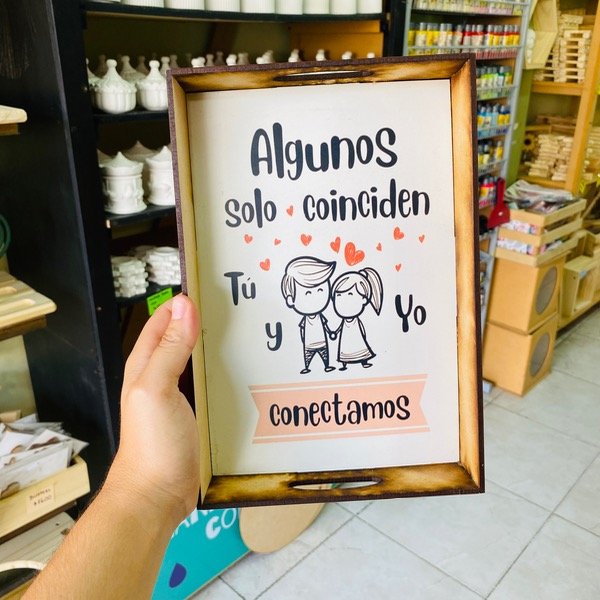 Algunos
solo coinciden
Tú
y
Yo
conectamos